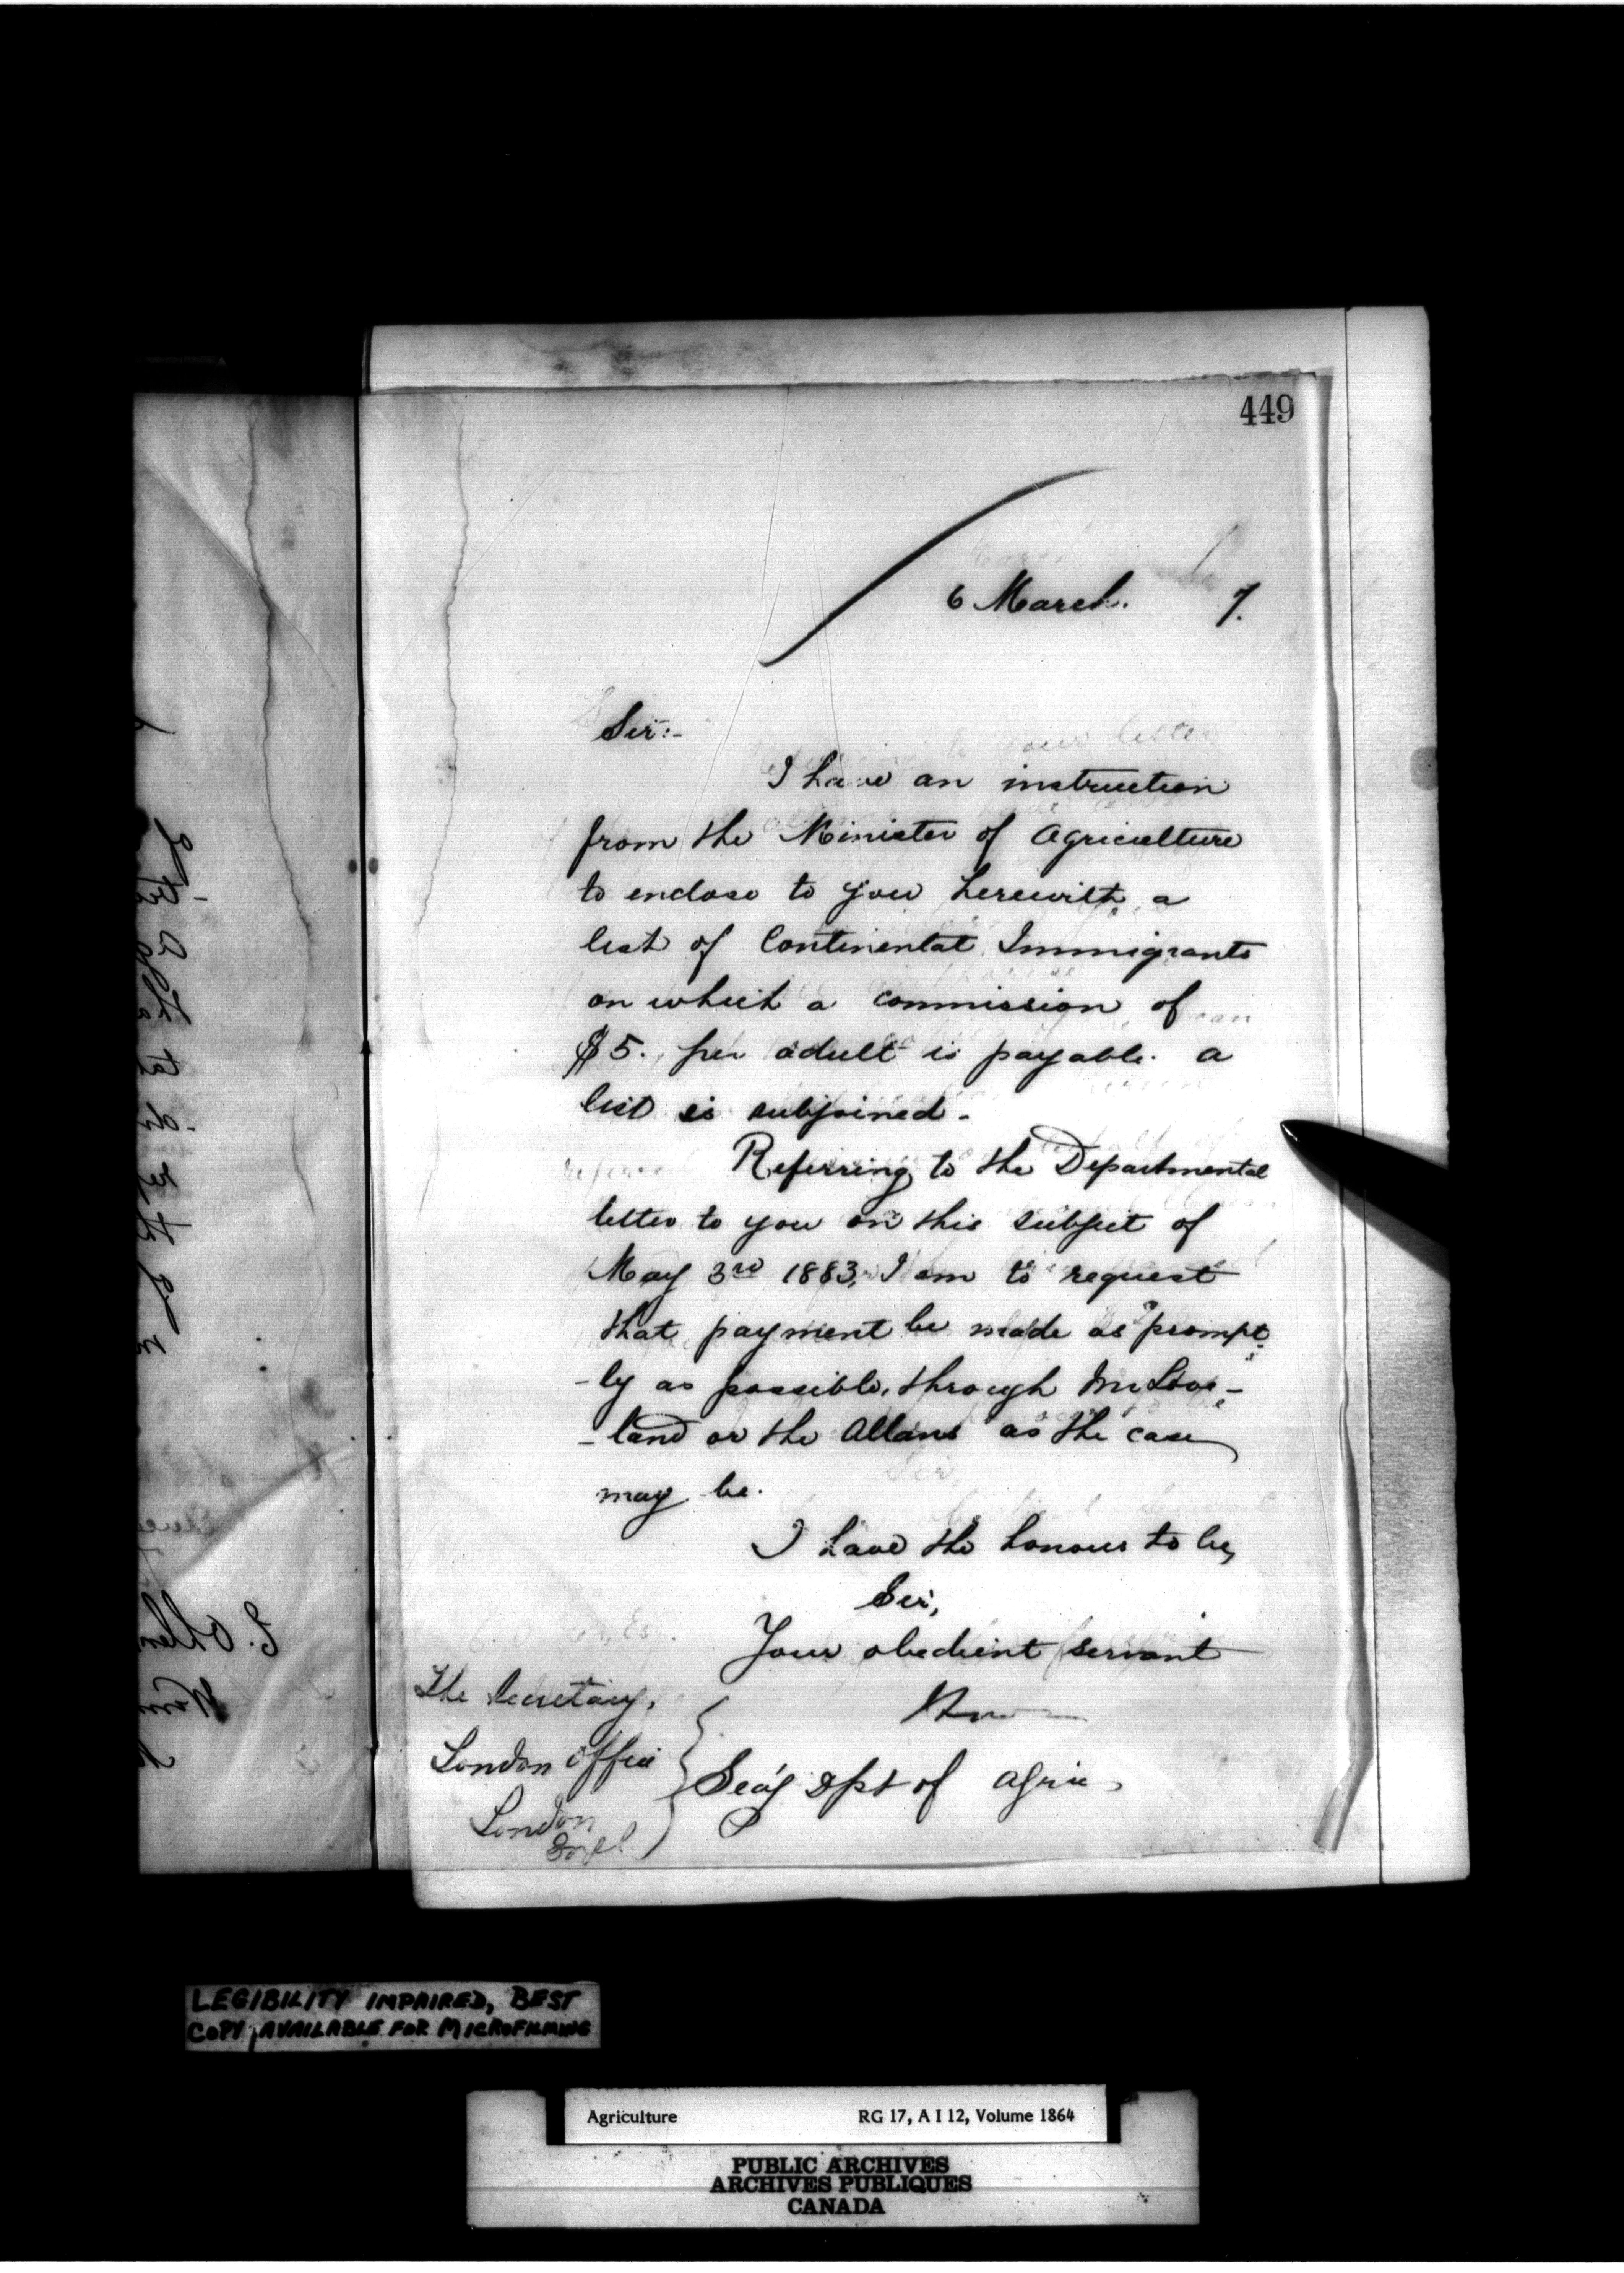 449
6 March. 7.
Sir:-
I have an instruction
from the Minister of Agriculture
to enclose to you herewith a
list of Continental Immigrants
on which a commission of
$5. per adult is payable. A
list is subjoined-
Referring to the Departmental
letter to you on this subject of
May 3rd 1883, I am to request
that payment be made as prompt-
-ly as possible, through Mr Love-
-land or the Allans as the case
may be.
I have the honour to be,
Sir,
Your obedient servant
Sec'y Dpt of Agric
The Secretary,
London Office
London
Engl
LEGIBILITY IMPAIRED, BEST
COPY AVAILABLE FOR MICROFILMING
Agriculture RG 17, A I 12, Volume 1864
PUBLIC ARCHIVES
ARCHIVES PUBLIQUES
CANADA